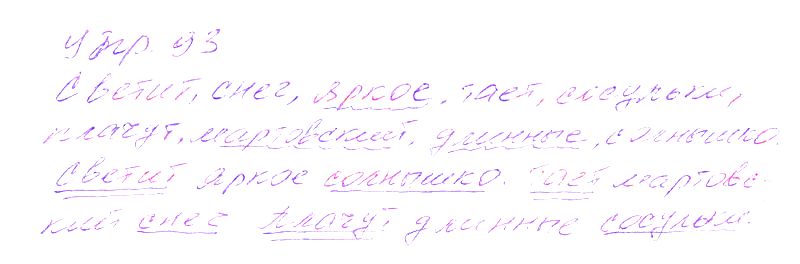 Упр. 93
Светит, снег, яркое, тает, сосульки,
плачут, мартовский, длинные, солнышко.
Светит яркое солнышко. Тает мартовс-
кий снег Плачут длинные сосульки.